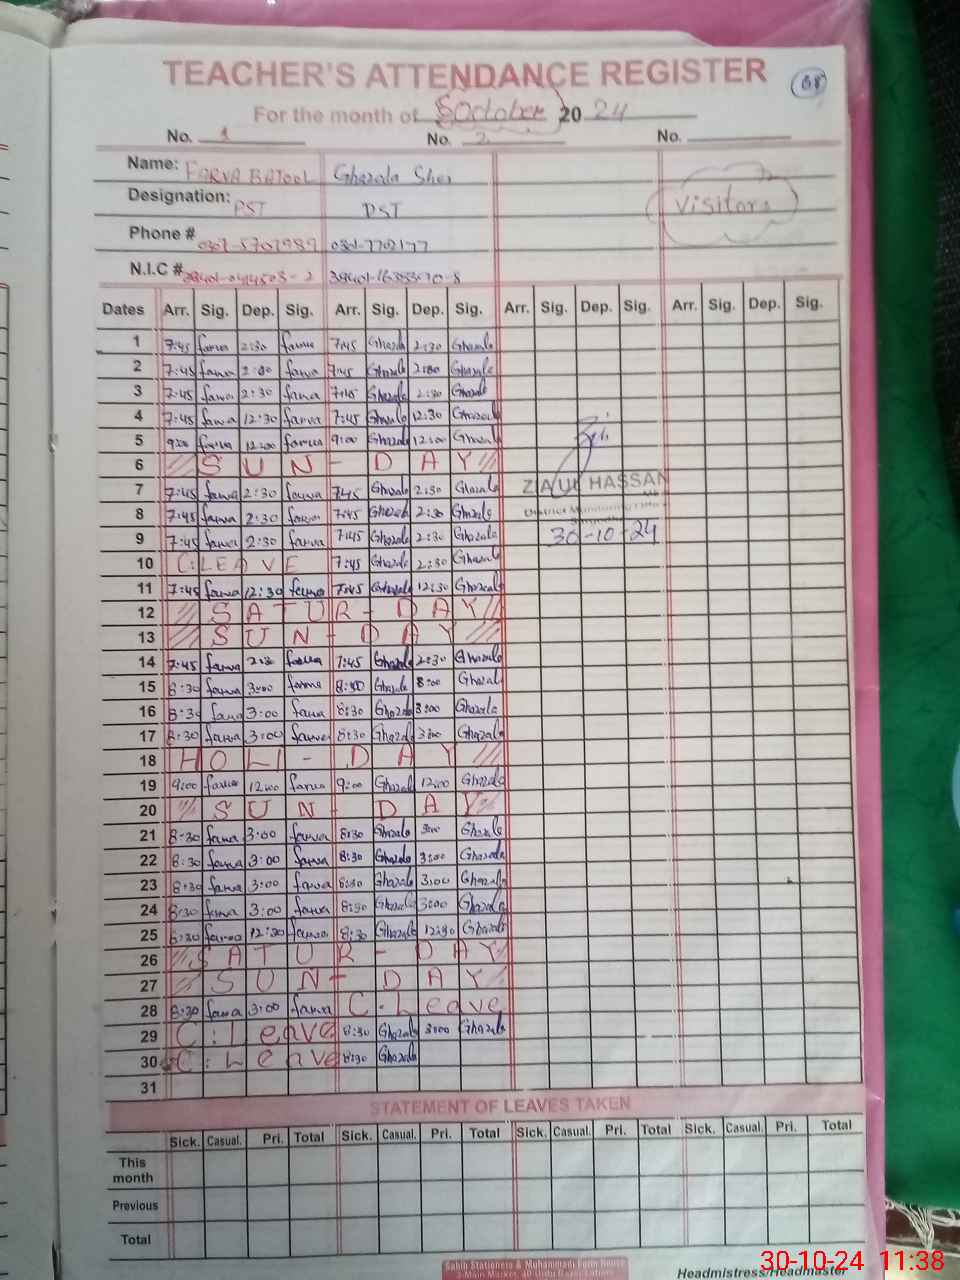 TEACHER'S ATTENDANCE REGISTER
68
For the month of October 2024
No. 1 No. 2 No.
Name: FARVA BATOOL Ghazala Sher
Designation: PST PST Visitors
Phone #
N.I.C #
Dates Arr. Sig. Dep. Sig. Arr. Sig. Dep. Sig. Arr. Sig. Dep. Sig. Arr. Sig. Dep. Sig.
1 7:45 farwa 2:30 farwa 7:45 Ghazala 2:30 Ghazala
2 7:45 farwa 2:00 farwa 7:45 Ghazala 2:00 Ghazala
3 7:45 farwa 2:30 farwa 7:45 Ghazala 2:30 Ghazala
4 7:45 farwa 12:30 farwa 7:45 Ghazala 12:30 Ghazala
5 9:00 farwa 12:00 farwa 9:00 Ghazala 12:00 Ghazala
6 SUN-DAY
7 7:45 farwa 2:30 farwa 7:45 Ghazala 2:30 Ghazala ZIAUL HASSAN
8 7:45 farwa 2:30 farwa 7:45 Ghazala 2:30 Ghazala District Monitoring Officer
9 7:45 farwa 2:30 farwa 7:45 Ghazala 2:30 Ghazala 30-10-24
10 C:LEAVE 7:45 Ghazala 2:30 Ghazala
11 7:45 farwa 12:30 farwa 7:45 Ghazala 12:30 Ghazala
12 SATUR-DAY
13 SUN-DAY
14 7:45 farwa 2:30 farwa 7:45 Ghazala 2:30 Ghazala
15 8:30 farwa 3:00 farwa 8:30 Ghazala 3:00 Ghazala
16 8:30 farwa 3:00 farwa 8:30 Ghazala 3:00 Ghazala
17 8:30 farwa 3:00 farwa 8:30 Ghazala 3:00 Ghazala
18 HOLI-DAY
19 9:00 farwa 12:00 farwa 9:00 Ghazala 12:00 Ghazala
20 SUN-DAY
21 8:30 farwa 3:00 farwa 8:30 Ghazala 3:00 Ghazala
22 8:30 farwa 3:00 farwa 8:30 Ghazala 3:00 Ghazala
23 8:30 farwa 3:00 farwa 8:30 Ghazala 3:00 Ghazala
24 8:30 farwa 3:00 farwa 8:30 Ghazala 3:00 Ghazala
25 8:30 farwa 12:30 farwa 8:30 Ghazala 12:30 Ghazala
26 SATUR-DAY
27 SUN-DAY
28 8:30 farwa 3:00 farwa C.Leave
29 C:Leave 8:30 Ghazala 3:00 Ghazala
30 C:Leave 8:30 Ghazala
31
STATEMENT OF LEAVES TAKEN
Sick. Casual. Pri. Total Sick. Casual. Pri. Total Sick. Casual. Pri. Total Sick. Casual. Pri. Total
This month
Previous
Total
Headmistress/Headmaster
30-10-24 11:38